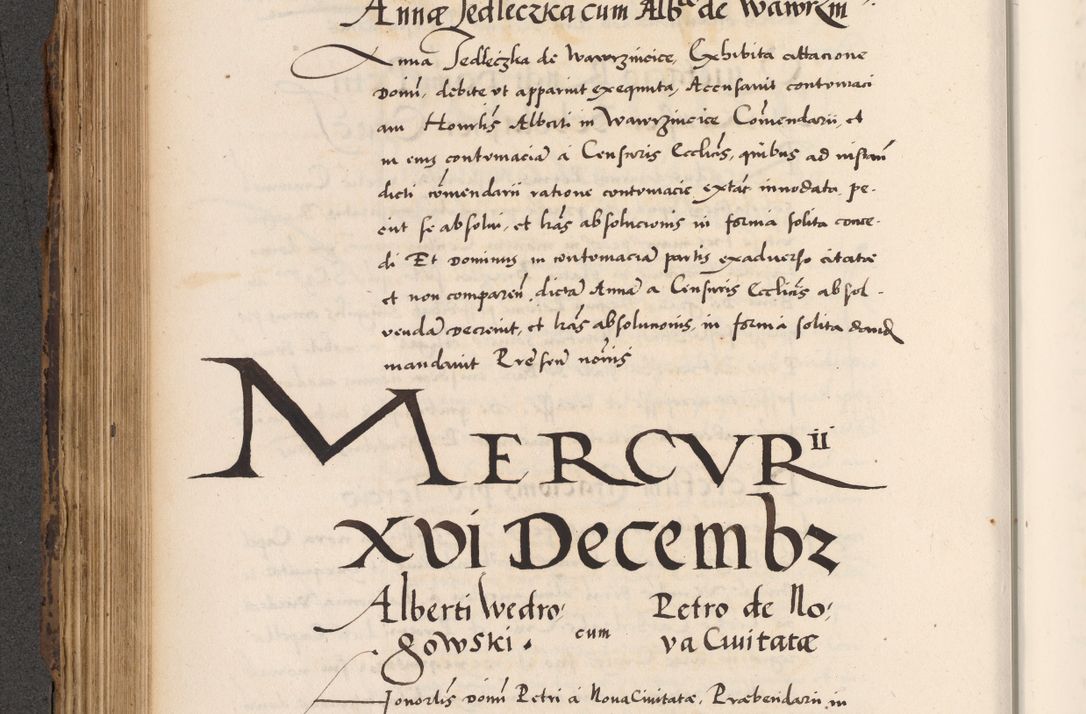 Annæ Jedleczka cum Alb de Wawrzin
Anna Jedleczka de Wawrzincice, Exhibita citatione
Domi, debite ut apparuit exequuta, Accusavit contumaci
am Honrlis Alberti in Wawrzincice Comendarii, et
in eius contumacia a Censuris Ecclicis, quibus ad instan
dicti comendarii ratione contumacie extat innodata, pe-
ciit se absolvi, et lras absolucionis in forma solita conce-
di Et Dominus in contumacia partis exadverso citatæ
et non comparen, dicta Anna a Censuris Ecclicis absol-
venda decrevit, et lras absolucionis, in forma solita
mandavit Presen nomis
MERCVRii
XVI Decembz
Alberti Wedro, Petro de No,
gowski. cum va Civitatæ
Honorlis Domi Petri a Nova Civitatæ, Præbendarii in